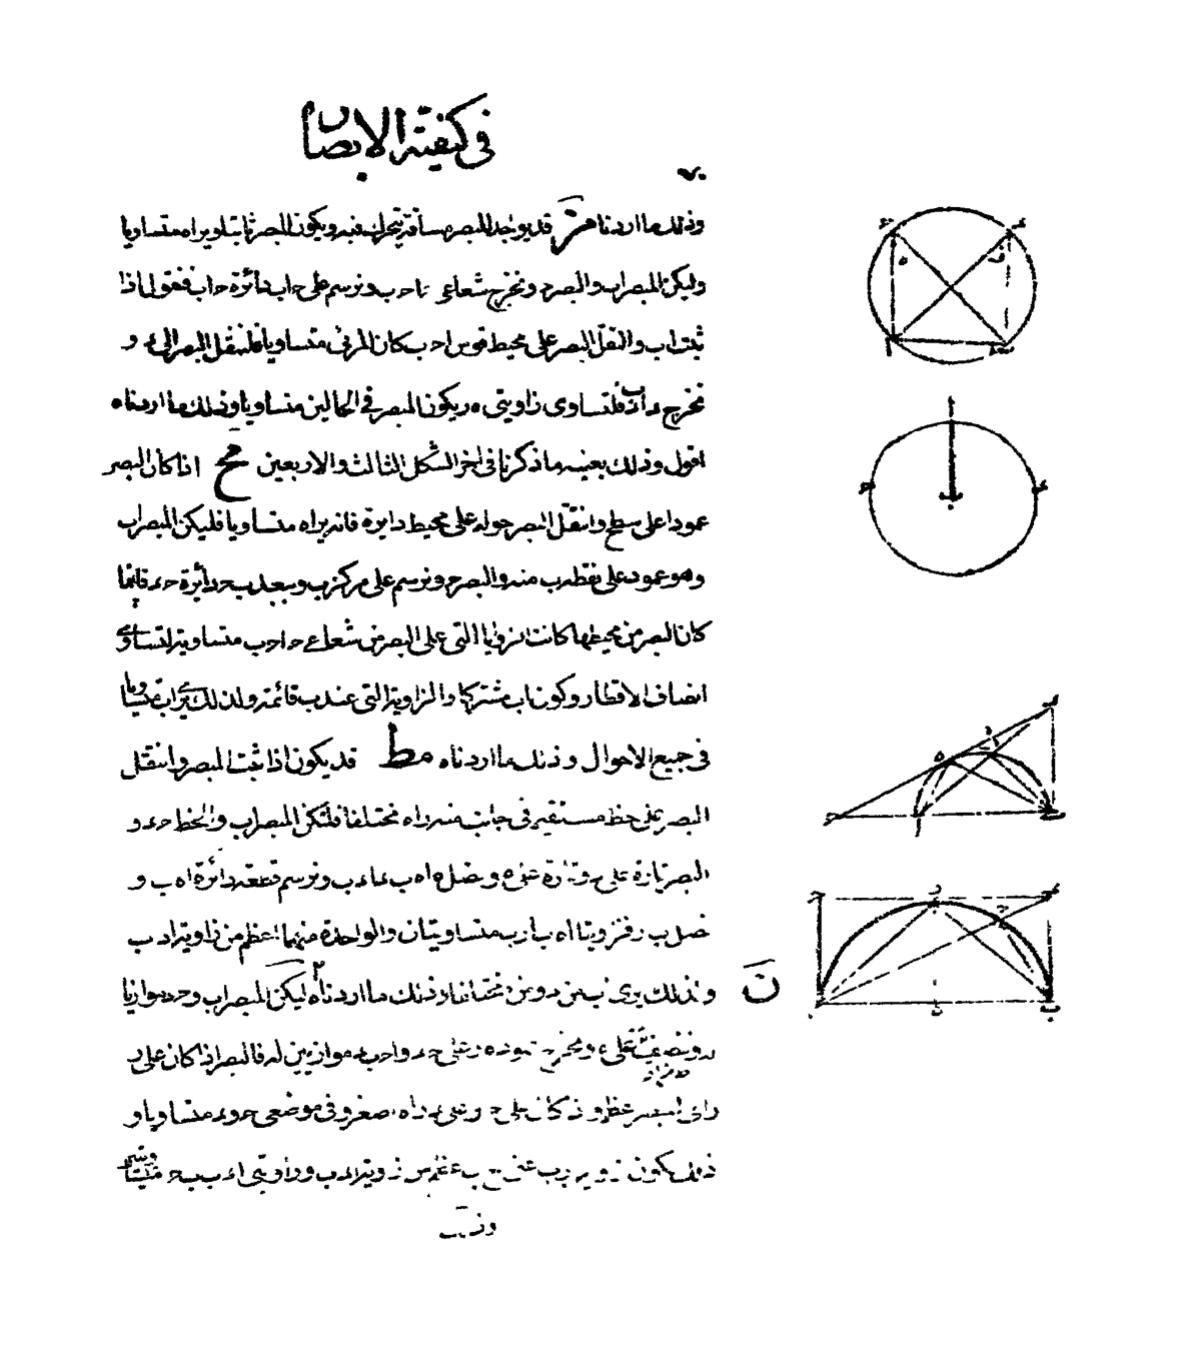 في كيفية الابصار
٧٠
وذلك ما اردناه مز قد يوجد للبصر مسافة يتحرك فيه ويكون المبصر ثابتا ويراه متساويا
وليكن المبصر اب والبصر ح ونخرج شعاعي احـ ب ونرسم على حاب دائرة حاب فنقول اذا
ثبت اب وانتقل البصر على محيط قوس احب كان المرئي متساويا فلينتقل البصر الى ء و
نخرج ءا ءب فلتساوى زاويتي ه ر يكون المبصر في الحالين متساويا وذلك ما اردناه
اقول وذلك بعينه ما ذكرنا في اخر الشكل الثالث والاربعين مح اذا كان المبصر
عمودا على سطح وانتقل البصر حوله على محيط دايرة فانه يراه متساويا فليكن المبصر اب
وهو عمود على نقطة ب منه والبصر ح ونرسم على مركز ب وببعد ب ح دائرة حء فاينما
كان البصر من محيطها كانت الزوايا التي على البصر من شعاعي حا حب متساوية لتساوي
انصاف الاقطار وكون اب مشتركا والزاوية التي عند ب قائمة ولذلك يرى اب متساويا
في جميع الاحوال وذلك ما اردناه مط قد يكون اذا ثبت المبصر وانتقل
البصر على خط مستقيم في جانب منه راه مختلفا فليكن المبصر اب والخط حء و
البصر تارة على وتارة على ه ونصل اه ب ء ب ونرسم قطعة دائرة اه ب و
نصل ب ر فزاويتا اه ب ارب متساويتان والواحدة منهما اعظم من زاوية اء ب
ولذلك يرى اب من ء ومن ه مختلفا وذلك ما اردناه ن ليكن المبصر اب وحء موازيا
له وننصف على ء ونخرج عمود ه ر على حء واحـ بء موازيين له فالبصر اذا كان على ر
راى المبصر اعظم واذا كان على ح وعلى ء راه اصغر وفي موضعي ح وء متساويا و
ذلك لكون زاوية ارب اعنى اح ب اعظم من زاوية اء ب وزاويتي اء ب ب حـ ا متساويتين
وذلك